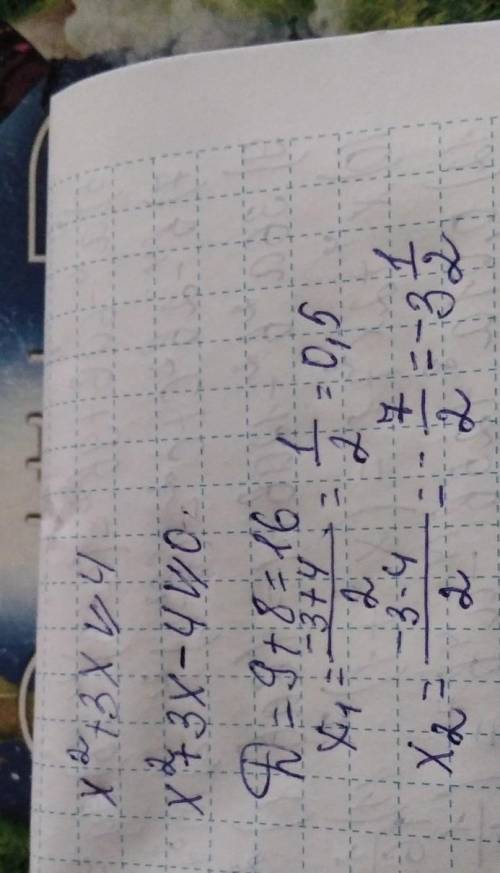 x²+3x ⩽ 4
x²+3x-4 ⩽ 0.
D=9+8=16
x₁=\frac{-3+4}{2}=\frac{1}{2}=0,5
x₂=\frac{-3-4}{2}=-\frac{7}{2}=-3\frac{1}{2}